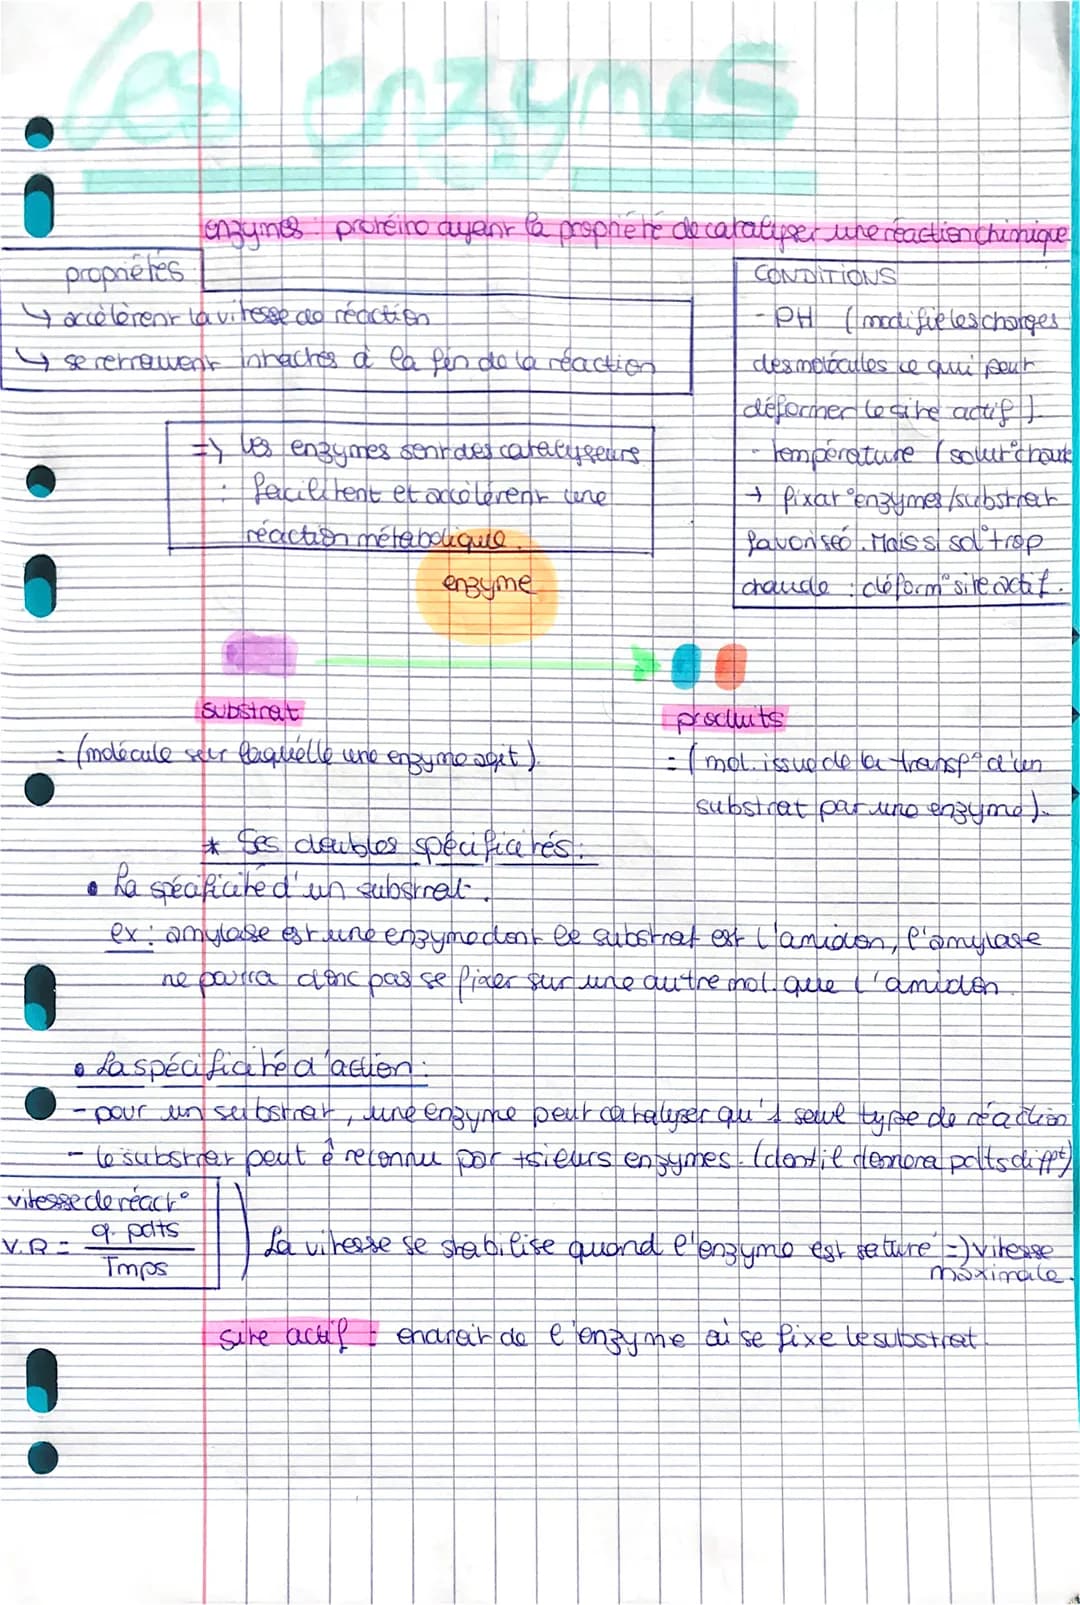 Les enzymes
enzymes : protéine ayant la propriété de catalyser une réaction chimique
propriétés
↳ accélèrent la vitesse de réaction
↳ se retrouvent intactes à la fin de la réaction
=> les enzymes sont des catalyseurs
: facilitent et accélèrent une
réaction métabolique.
CONDITIONS
- PH (modifie les charges
des molécules ce qui peut
déformer le site actif).
- température (solut° chaude
→ fixat° enzymes/substrat
favorisé. Mais si sol° trop
chaude : déform° site actif.
enzyme
substrat
= (molécule sur laquelle une enzyme agit).
produits
= (mol. issue de la transf° d'un
substrat par une enzyme).
* Ses doubles spécificités :
• La spécificité d'un substrat.
ex : amylase est une enzyme dont le substrat est l'amidon, l'amylase
ne pourra donc pas se fixer sur une autre mol. que l'amidon.
• La spécificité d'action :
- pour un substrat, une enzyme peut catalyser qu'1 seul type de réaction
- le substrat peut ê reconnu par +sieurs enzymes. (dont il donnera pdts difft)
vitesse de réact°
V.R = q. pdts
Tmps
La vitesse se stabilise quand l'enzyme est saturé => vitesse
maximale.
site actif : endroit de l'enzyme où se fixe le substrat.